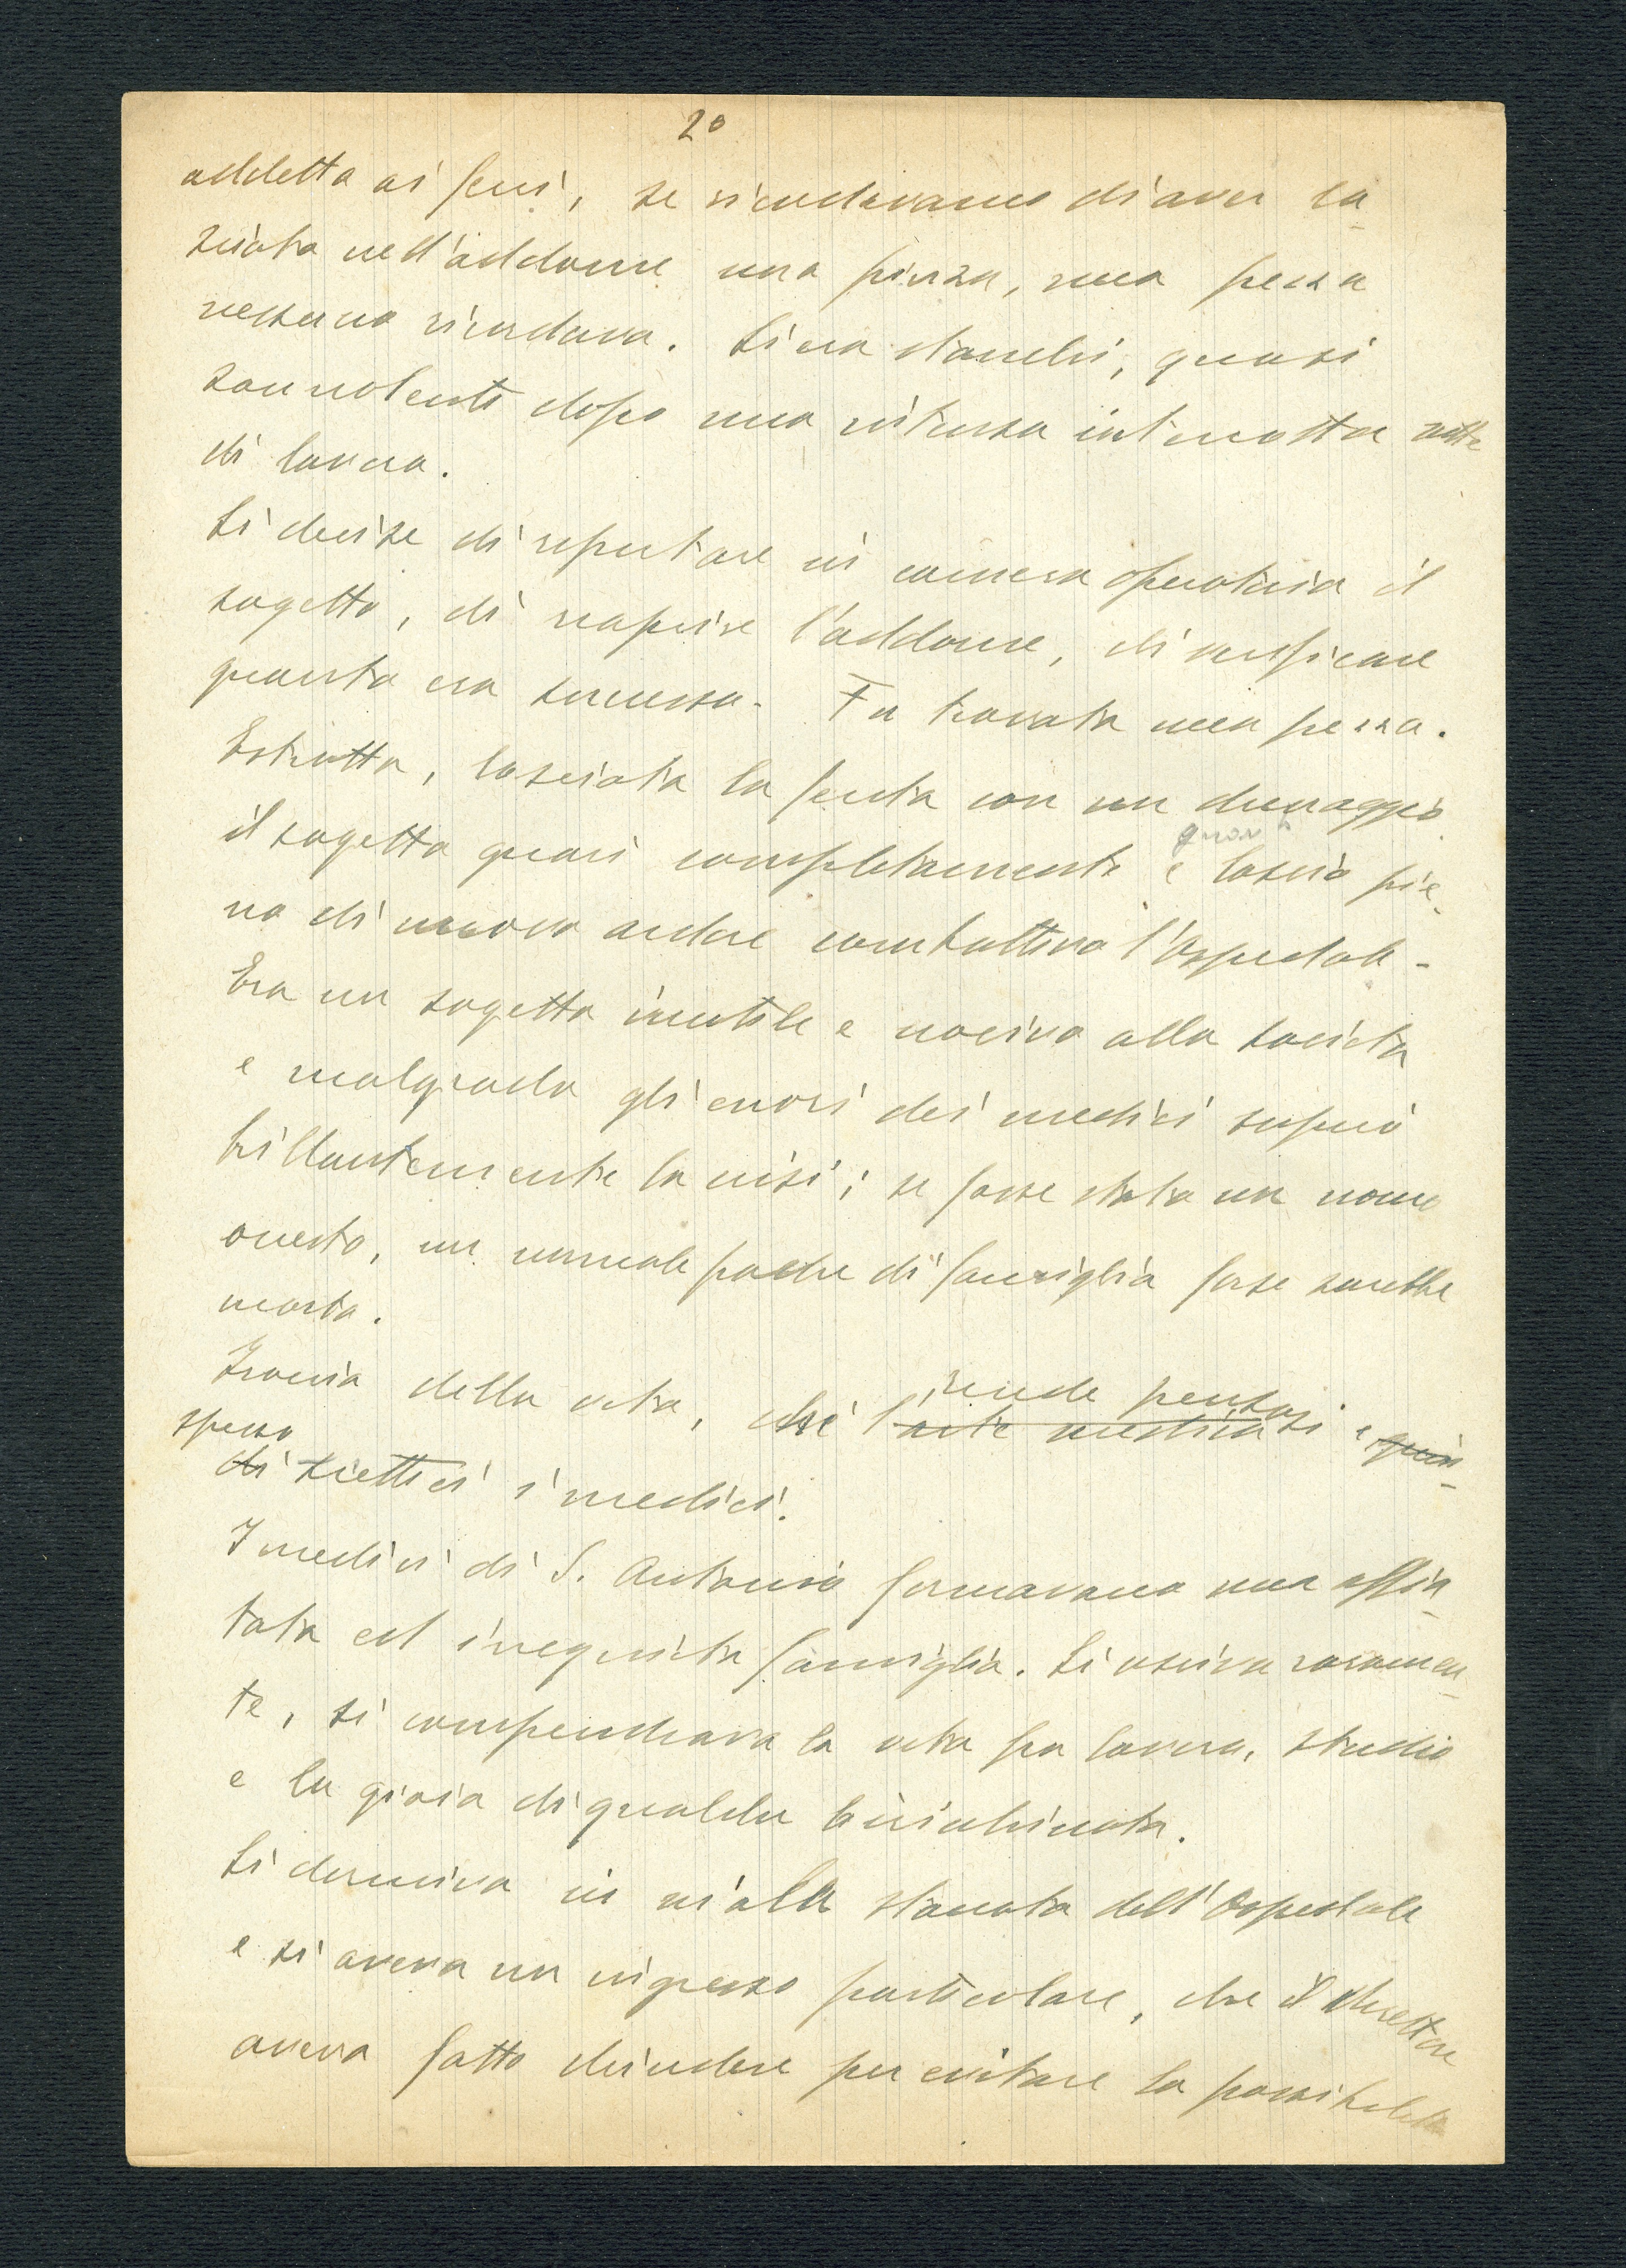 20
addetta ai ferri, se ricordavamo di aver la-
sciata nell'addome una pinza, una pezza
nessuno ricordava. Si era stanchi, quasi
sonnolenti dopo una intensa notte
di lavoro.
Si decise di riportare in camera operatoria il
sogetto, di riaprire l'addome, di verificare
quanto era successo. Fu trovata una pezza.
Estratta, lasciata la ferita con un drenaggio
il sogetto guarì completamente e lasciò pie-
no di nuovo ardore combattivo l'Ospedale.
Era un sogetto inutile e nocivo alla società
e malgrado gli errori dei medici superò
brillantemente la crisi; se fosse stato un uomo
onesto, un normale padre di famiglia forse sarebbe
morto.
Ironia della vita, che rende pensosi e
l'arte medica quin-
spesso
di scettici i medici.
I medici di S. Antonio formavano una affia-
tata ed irrequieta famiglia. Si usciva raramen-
te, si compendiava la vita fra lavoro, studio
e la gioia di qualche birichinata.
Si dormiva in un'ala staccata dell'Ospedale
e si aveva un ingresso particolare, che il direttore
aveva fatto chiudere per evitare la possibilità